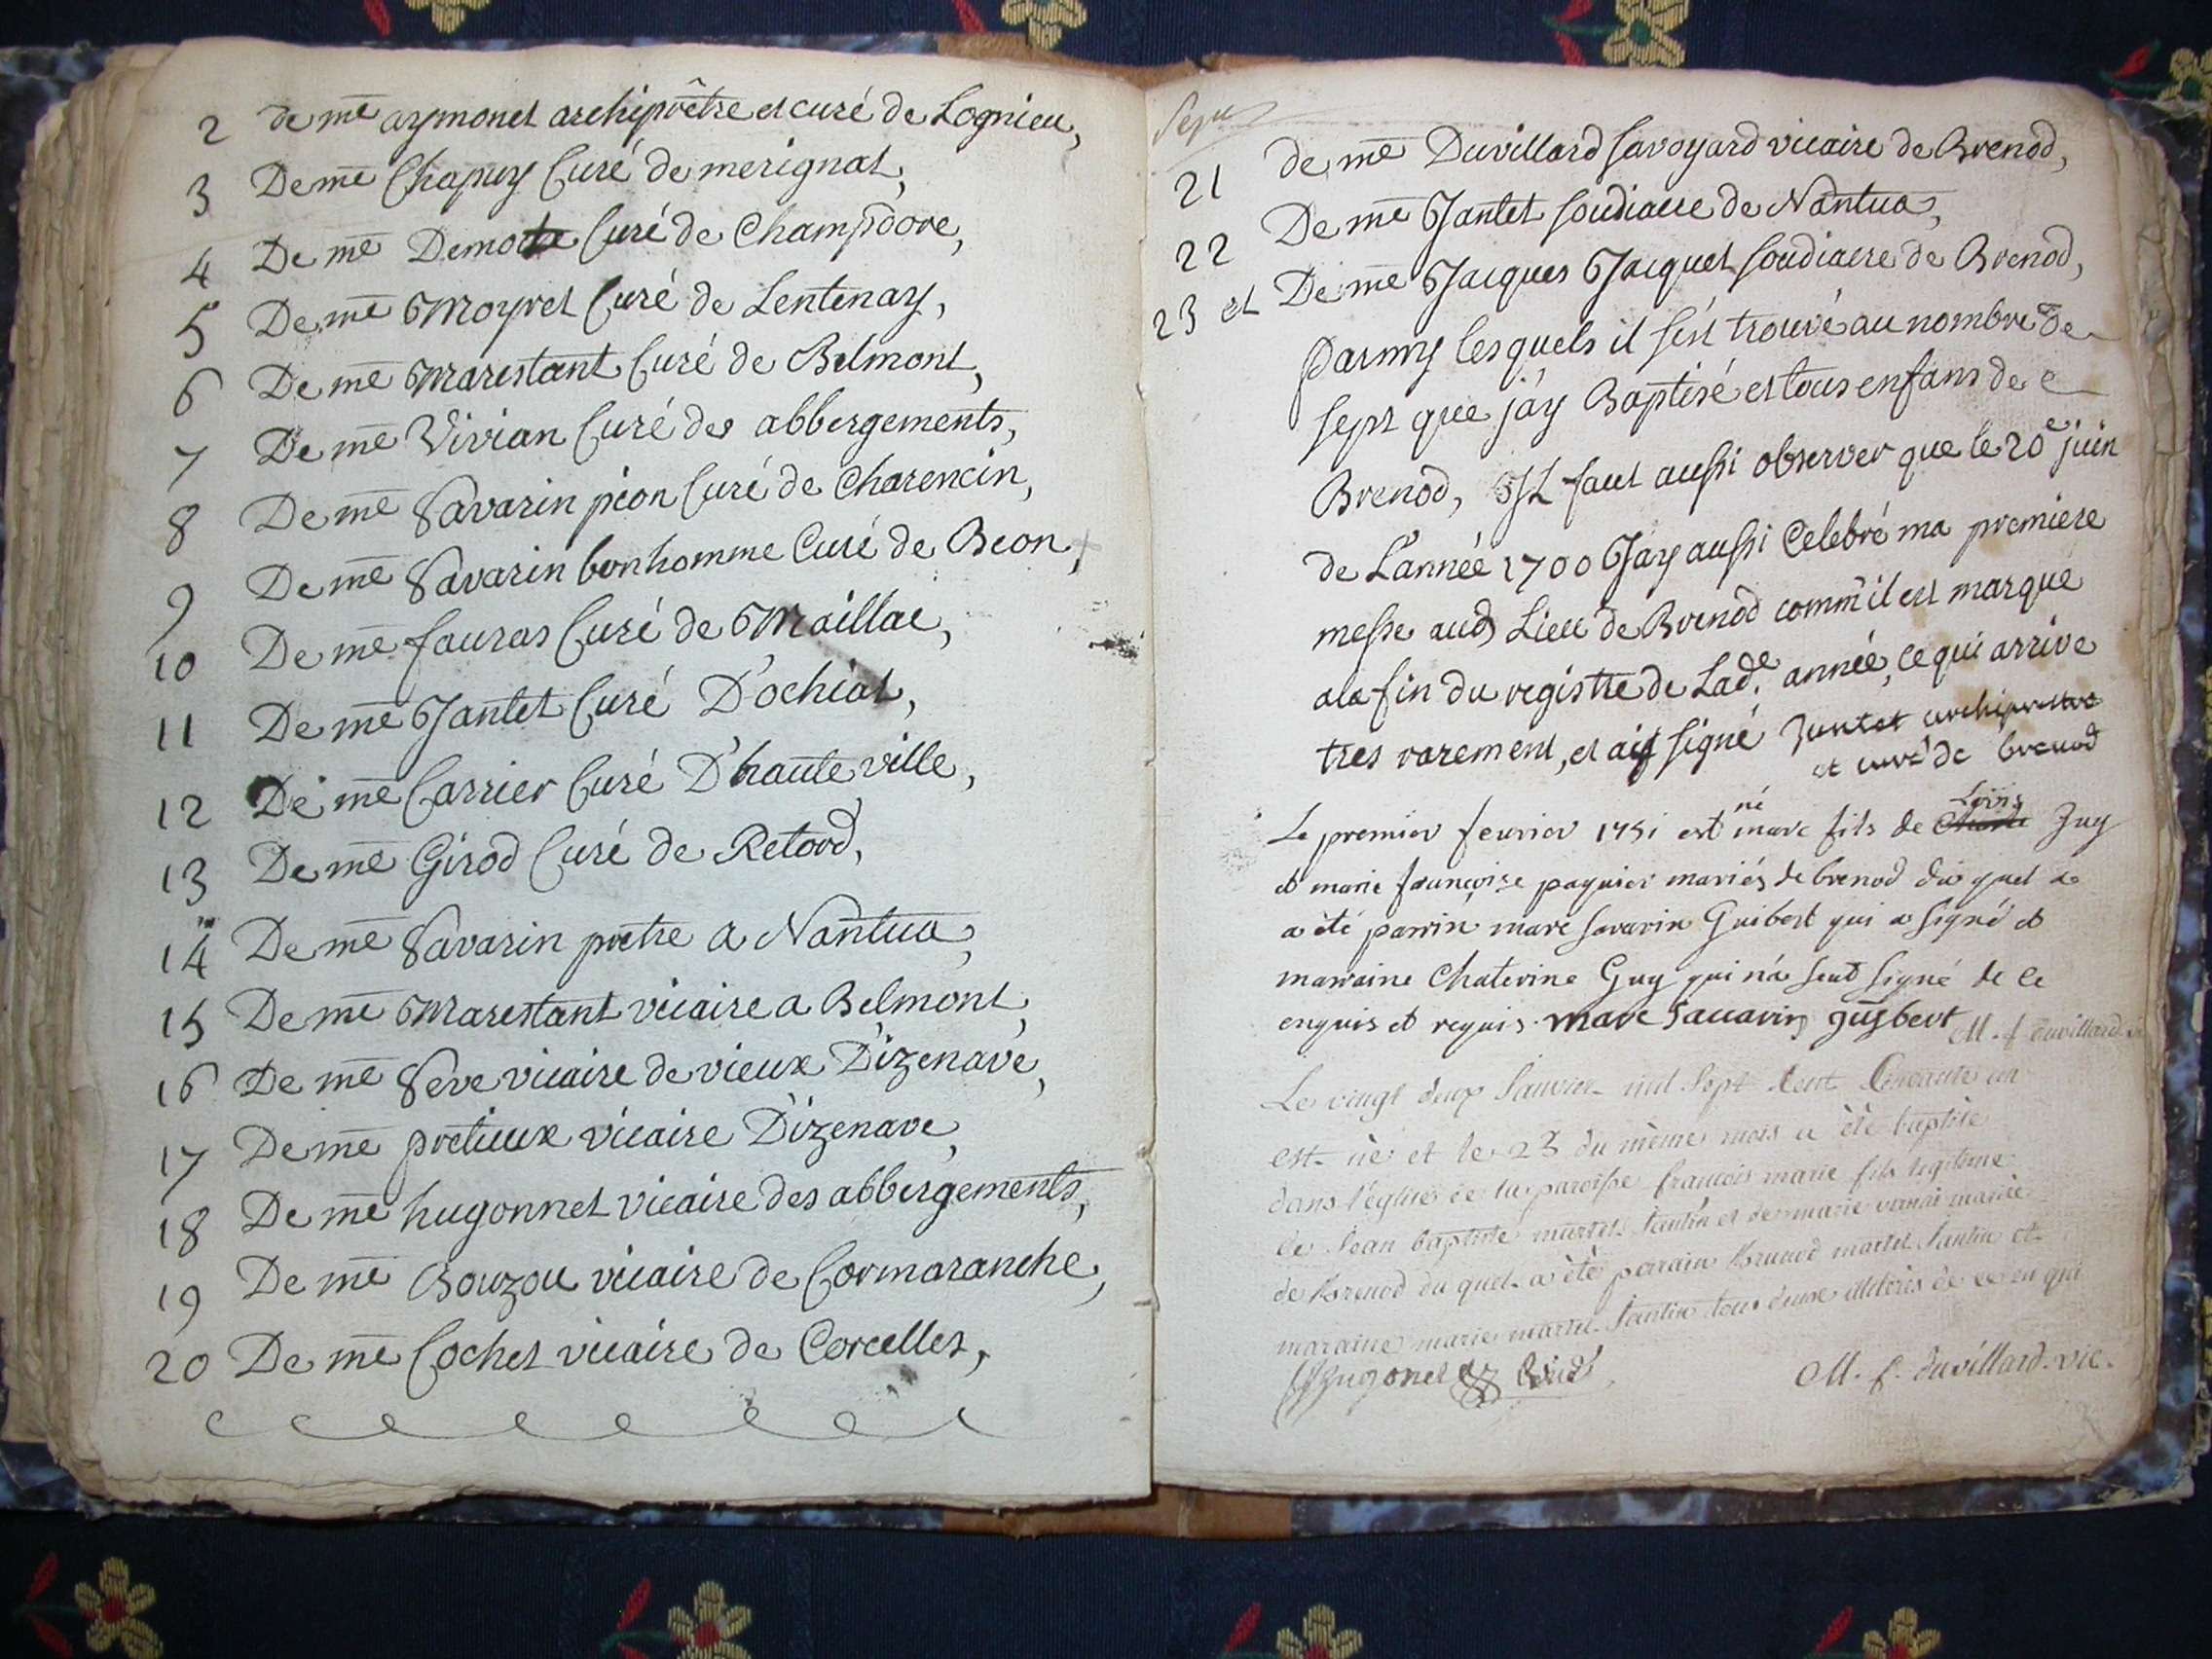 2 de me aymonet archiprêtre et curé de Lognieu,
3 De me Chapuy Curé de merignat,
4 De me Demoche Curé de Champdore,
5 De me Moyret Curé de Lentenay,
6 De me Marestant Curé de Belmont,
7 De me Vivian Curé des abbergements,
8 De me Savarin pion Curé de Charencin,
9 De me Savarin bonhomme Curé de Beon,
10 De me fauras Curé de Maillac,
11 De me Jantet Curé D'ochiat,
12 De me Carrier Curé D'hauteville,
13 De me Girod Curé de Retord,
14 De me Savarin prêtre a Nantua,
15 De me Marestant vicaire a Belmont,
16 De me Seve vicaire de vieux D'izenave,
17 De me pretieux vicaire D'izenave,
18 De me hugonnet vicaire des abbergements,
19 De me Bouzou vicaire de Cormaranche,
20 De me Cochet vicaire de Corcelles,
21 de me Duvillard savoyard vicaire de Brenod,
22 De me Jantet soudiacre de Nantua,
23 et De me Jacques Jacquet soudiacre de Brenod,
parmy lesquels il s'est trouvé au nombre de
sept que j'ay Baptisé et tous enfans de
Brenod, Il faut aussi observer que le 20e juin
de L'année 1700 J'ay aussi Celebré ma premiere
messe aud Lieu de Brenod comm'il est marqué
a la fin du registre de Lade. année, ce qui arrive
tres rarement, et ay signé Jantet archiprettre
et curé de brenod
Le premier feurier 1751 est né marc fils de Louis Juy
et marie françoise paquier mariés de brenod du quel a
a été parrin marc savarin Guibert qui a signé et
marraine Chaterine Guy qui n'a seut signé de ce
enquis et requis. marc Sauarin guybert M. f. duvillard
Le vingt deux Janvier mil sept cent cinquante un
est né et le 23 du même mois a été baptisé
dans l'église de la paroisse francois marie fils legitime
de Jean baptiste martel Santin et de marie mariés
de Brenod du quel a été parrain martel Santin et
maraine marie martel Santin tous deux illiterés de ce en qui
M. f. duvillard. vic.